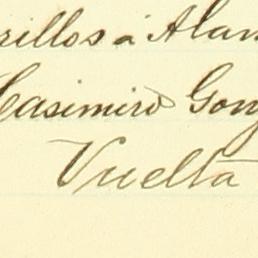 rillos á Alam
Casimiro Gonz
Vuelta